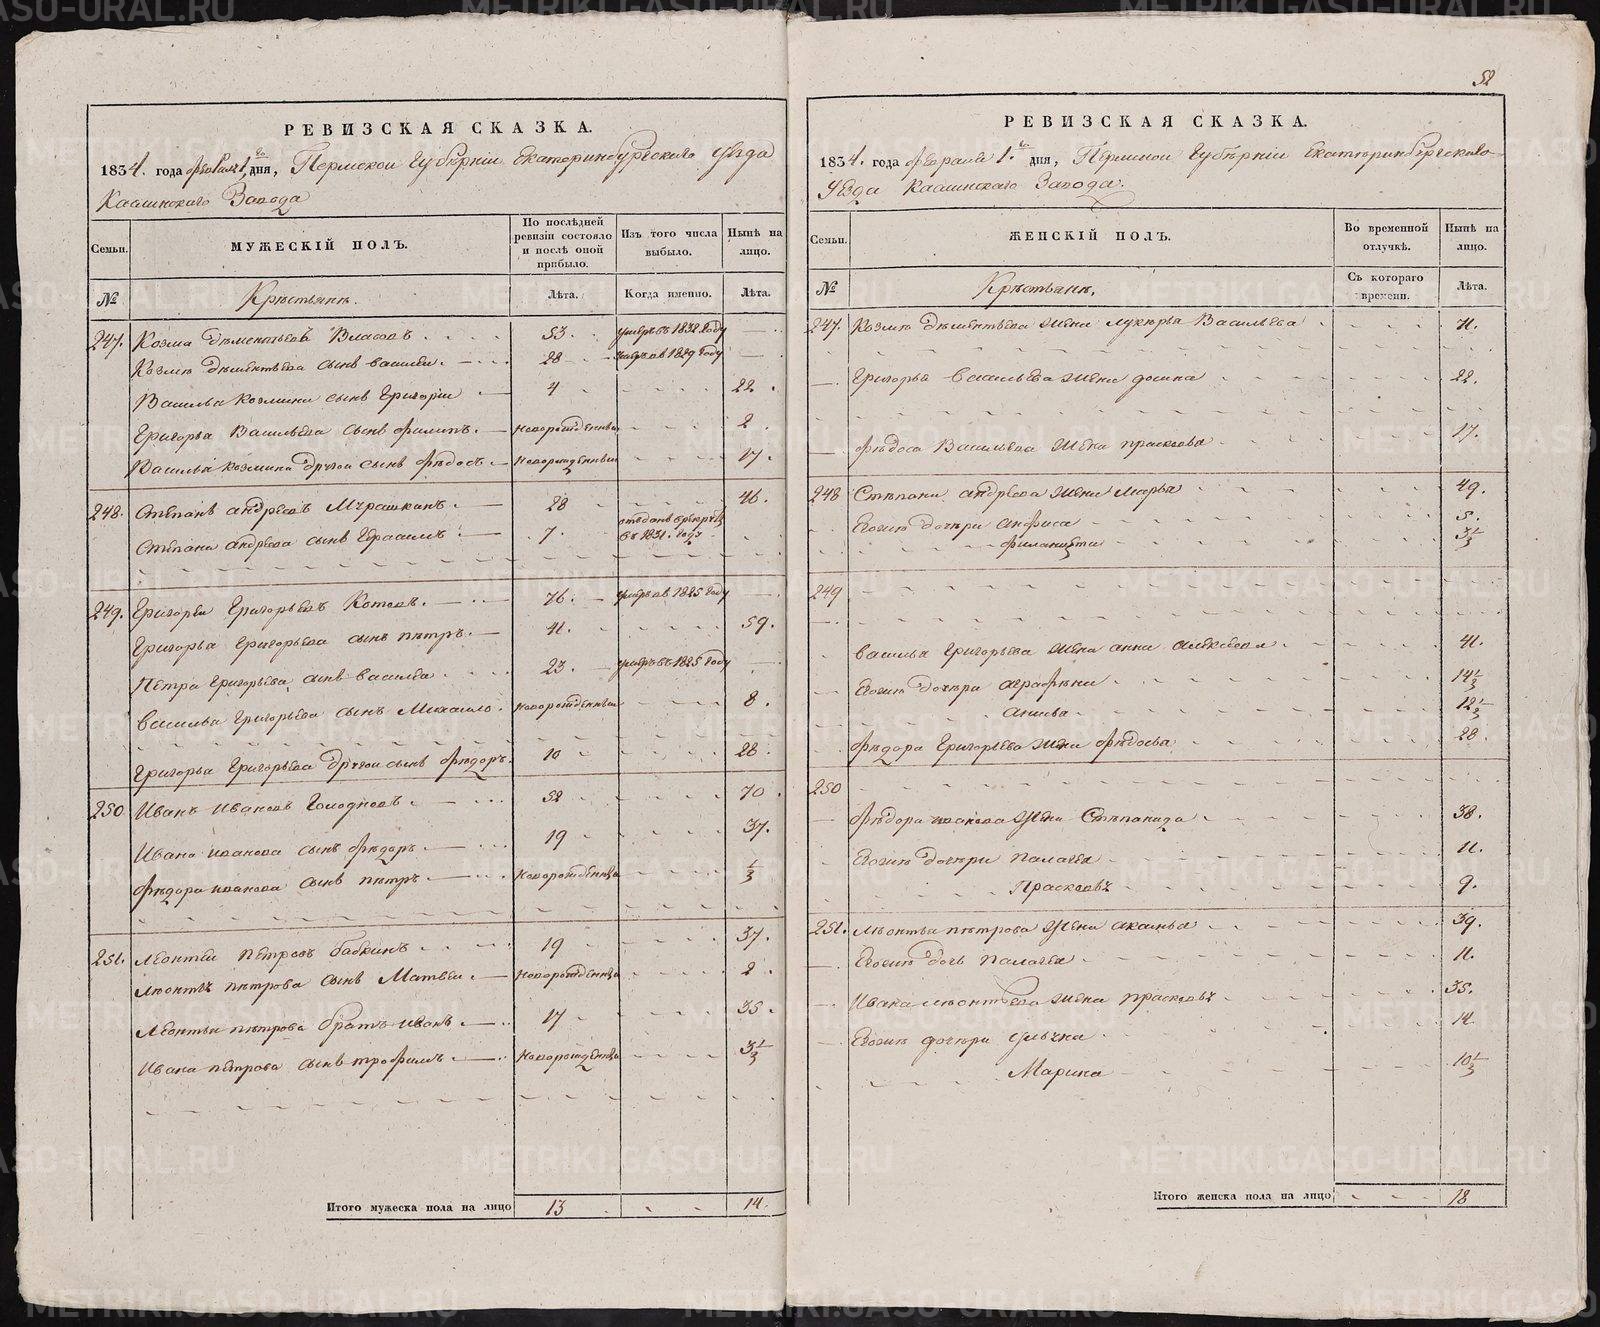 РЕВИЗСКАЯ СКАЗКА.
1834. года февраля 1го дня, Пермской Губерніи Екатеринбургскаго Уѣзда
Каслинскаго Завода
Семьи. МУЖЕСКІЙ ПОЛЪ. По послѣдней ревизіи состояло и послѣ оной прибыло. Изъ того числа выбыло. Нынѣ на лицо.
№ Крестьяне. Лѣта. Когда именно. Лѣта.
247. Козма Дементьевъ Власовъ 53 умеръ въ 1832 году
Козмы Дементьева сынъ Василей 28 умеръ въ 1829 году
Василья Козмина сынъ Григорій 4 22
Григорья Васильева сынъ Филипъ новорожденный 2
Василья Козмина другой сынъ Федосъ новорожденный 17.
248. Степанъ Андреевъ Мурашкинъ 28 46.
Степана Андреева сынъ Герасимъ 7. отданъ в рекруты въ 1831. году
249. Григорей Григорьевъ Котовъ. 76. умеръ въ 1825 году
Григорья Григорьева сынъ Петръ. 41. 59.
Петра Григорьева сынъ Василей 23. умеръ въ 1825 году
Василья Григорьева сынъ Михайло новорожденный 8.
Григорья Григорьева другой сынъ Федоръ. 10 28
250 Иванъ Ивановъ Голодновъ. 52 70
Ивана Иванова сынъ Федоръ 19 37.
Федора Иванова сынъ Петръ новорожденный 1/3
251. Леонтей Петровъ Бабкинъ 19 37.
Леонтья Петрова сынъ Матвей новорожденный 2
Леонтья Петрова братъ Иванъ 17 35
Ивана Петрова сынъ Трофимъ новорожденный 3 1/3
Итого мужеска пола на лицо 13 14.
52
РЕВИЗСКАЯ СКАЗКА.
1834. года февраля 1.го дня, Пермской Губерніи Екатеринбургскаго
Уѣзда Каслинскаго Завода.
Семьи. ЖЕНСКІЙ ПОЛЪ. Во временной отлучкѣ. Нынѣ на лицо.
№ Крестьяне. Съ котораго времени. Лѣта.
247. Козмы Дементьева жена Лукерья Васильева 71.
Григорья Васильева жена Домна 22.
Федоса Васильева жена Прасковья 17.
248 Степана Андреева жена Марья 49.
Егоже дочери Анфиса 5.
3 1/3
249
Василья Григорьева жена Анна Алексеева 41.
Егоже дочери Аграфена 14 1/2
Анисья 12 1/2
Федора Григорьева жена Федосья 28
250
Федора Иванова жена Степанида 38.
Егоже дочери Палагея 11.
Прасковья 9.
251. Леонтья Петрова жена Акилина 39.
Егоже дочь Палагея 11.
Ивана жена Прасковья 35.
Егоже дочери 14
Марина 10 1/3
Итого женска пола на лицо 18
METRIKI.GASO-URAL.RU